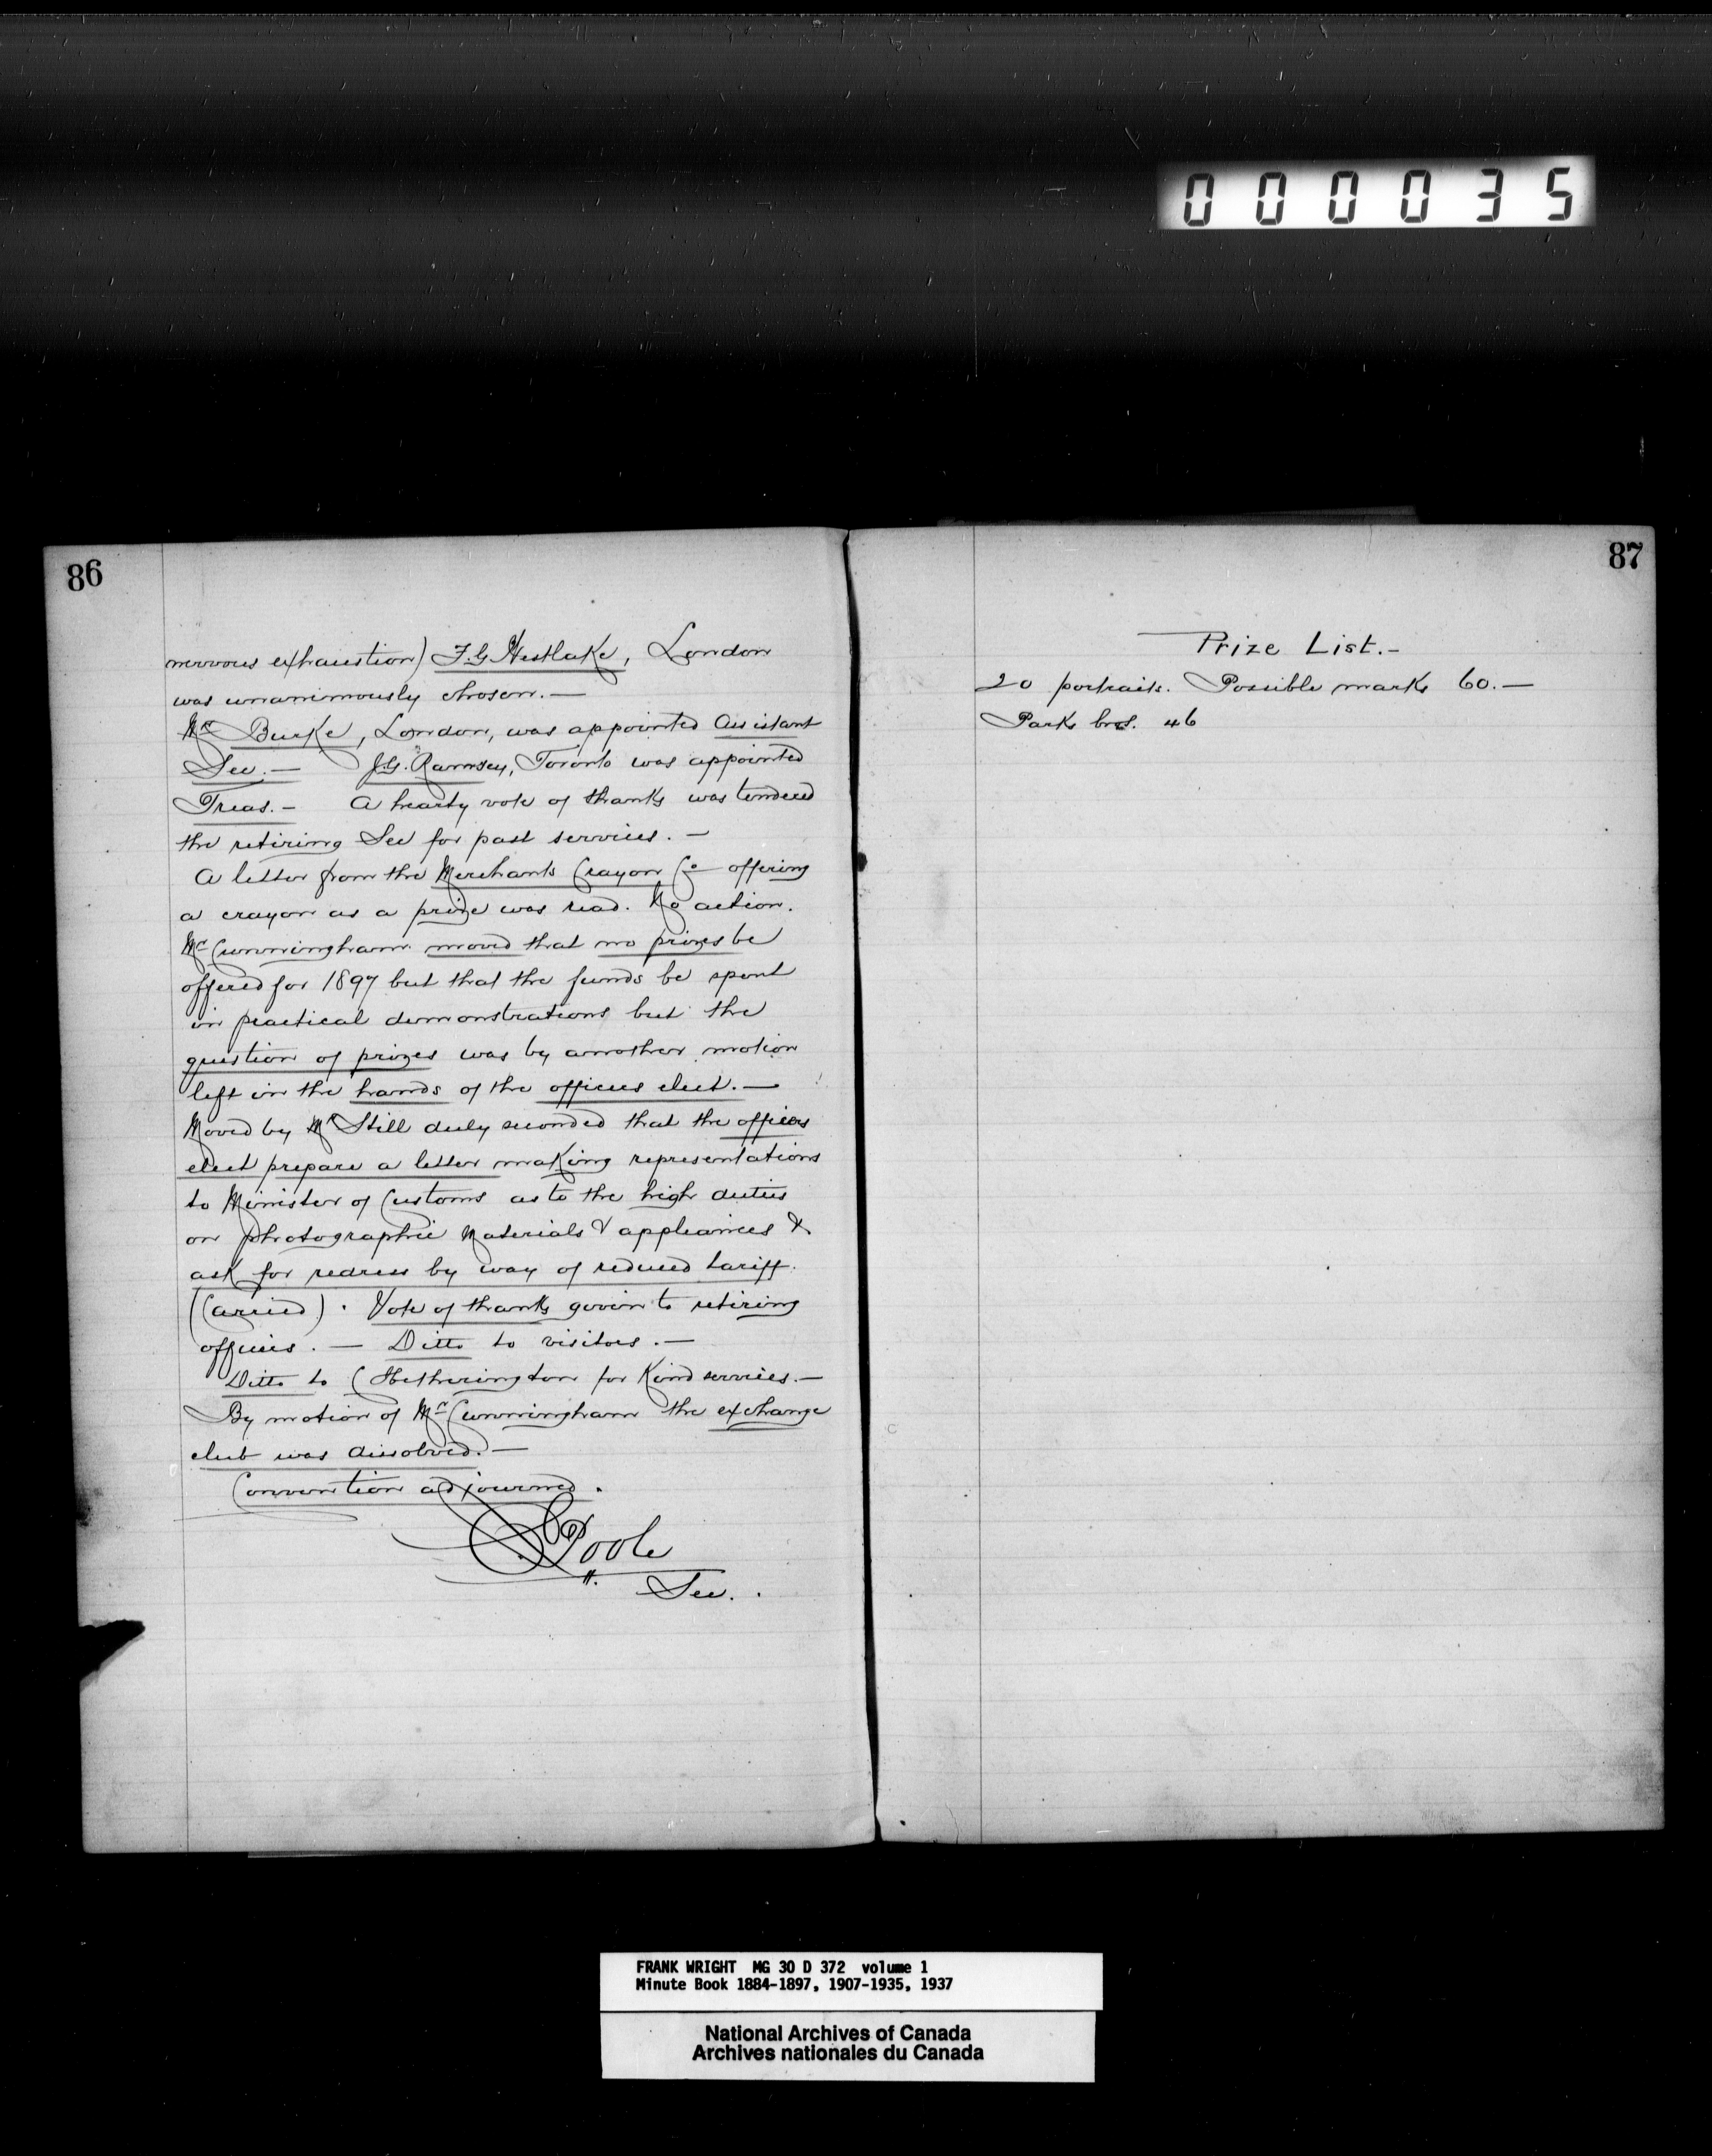 000035
86
nervous exhaustion) F.G. Westlake, London
was unanimously chosen.—
Mr Burke, London, was appointed Assistant
Sec.— J.G. Ramsey, Toronto was appointed
Treas.— A hearty vote of thanks was tendered
the retiring Sec for past services.—
A letter from the Merchants Crayon Co offering
a crayon as a prize was read. No action.
Mr Cunningham moved that no prizes be
offered for 1897 but that the funds be spent
in practical demonstrations but the
question of prizes was by another motion
left in the hands of the officers elect.—
Moved by Mr Still duly seconded that the officers
elect prepare a letter making representations
to Minister of Customs as to the high duties
on photographic Materials & appliances &
ask for redress by way of reduced tariff.
(Carried). Vote of thanks given to retiring
officers.— Ditto to visitors.—
Ditto to C Hetherington for Kind services.—
By motion of Mr Cunningham the exchange
club was dissolved.—
Convention adjourned.
Poole
Sec.
87
Prize List.—
20 portraits. Possible marks 60.—
Park bros. 46
FRANK WRIGHT MG 30 D 372 volume 1
Minute Book 1884-1897, 1907-1935, 1937
National Archives of Canada
Archives nationales du Canada